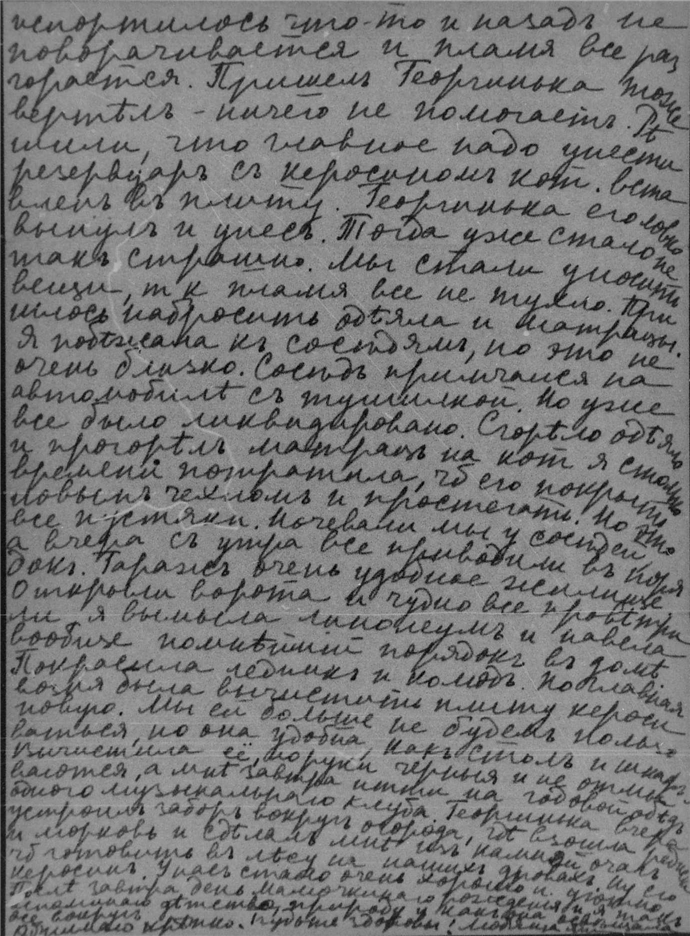 испортилось что-то и назадъ не
поворачивается и пламя все раз
горается. Пришелъ Георгинька тоже
вертѣлъ - ничего не помогаетъ. Рѣ
шили, что главное надо унести
резервуаръ съ керосиномъ кот. вста
вленъ въ плиту. Георгинька его ловко
вынулъ и унесъ. Тогда уже стало не
такъ страшно. Мы стали уносить
вещи, т к пламя все не тухло. При
шлось набросить одѣяла и матрацы.
Я побѣжала къ сосѣдямъ, но это не
очень близко. Сосѣдъ примчался на
автомобилѣ съ тушилкой. Но уже
все было ликвидировано. Сгорѣло одѣяло
и прогорѣлъ матрацъ на кот я столько
времени потратила, чтб его покрыть
новымъ чехломъ и простегать. Но это
все пустяки. Ночевали мы у сосѣдей
а вчера съ утра все приводили въ поря
докъ. Гаражъ очень удобное жилище
Открыли ворота и чудно все провѣтри
ли я вымыла линолеумъ и навела
вообще полнѣйшій порядокъ въ домѣ.
Покрасила ледникъ и комодъ. Но главная
возня была вычистить плиту кероси
новую. Мы ей больше не будемъ пользо
ваться, но она удобна, какъ столъ и шкапъ.
Вычистила её, но руки черныя и не отмы
ваются, а мнѣ завтра итти на годовой обѣдъ
одного музыкальнаго клуба. Георгинька вчера
устроилъ заборъ вокругъ огорода, гдѣ взошла редиска
и морковь и сдѣлалъ мнѣ изъ камней очагъ
чтб готовить въ лѣсу на нашихъ дровахъ. Ну его
керосинъ. У насъ стало очень хорошо и уютно
завтра день мамочкинаго рожденія и я такъ
вспоминаю дѣтство, природу и какъ она
все вокругъ
Обнимаю крѣпко. Будьте здоровы!